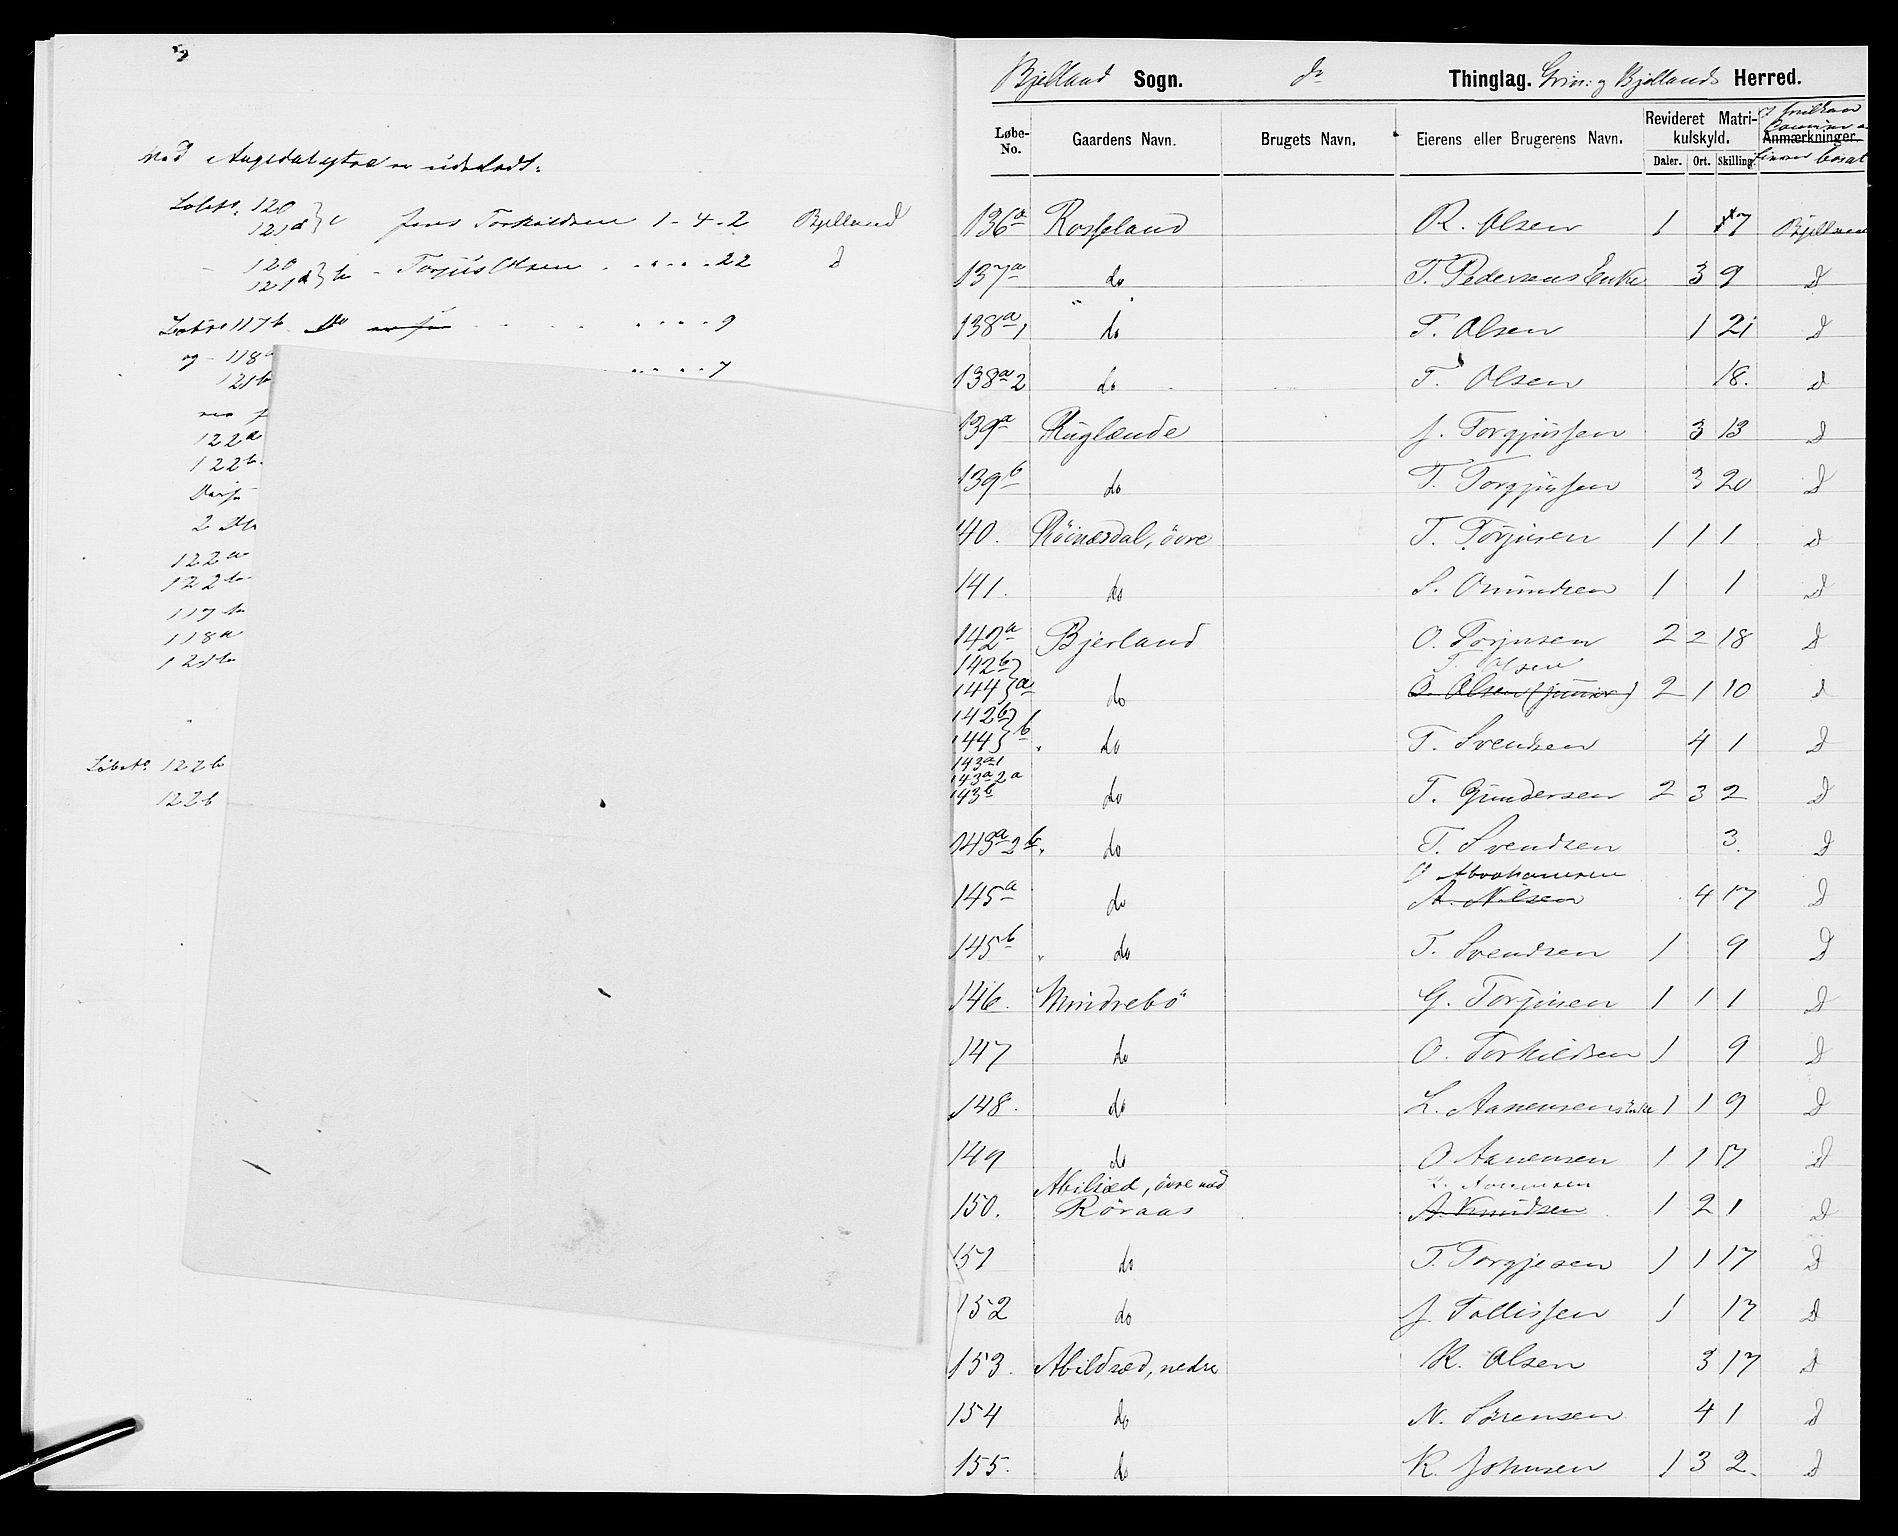 Med Augedalsstræ er udeladt:
Løbeno 120
121d } c Jens Torkildsen 1-4-2 Bjelland
- 120
121d } b - Torjus Olsen . . . . . 22 d
Løbno 117b Do . . . . . . 9
og - 118a
121b . . . . . 7
122a
122b
2 Do
122a
122b
117b
118a
121b
Løbeno 122b
122b
Bjelland Sogn. do Thinglag. Grin: og Bjellands Herred.
Løbe-No. Gaardens Navn. Brugets Navn. Eierens eller Brugerens Navn. Revideret Matrikulskyld. Daler. Ort. Skilling. Anmærkninger.
136a Rosseland R. Olsen 1 17 Bjelland
137a do T. Pedersens Enke 3 9 d
138a1 do T. Olsen 1 21 d
138a2 do T. Olsen 18. d
139a Kuglænde J. Torgjussen 3 13 d
139b do T. Torgjussen 3 20 d
140. Röinesdal, övre T. Torjusen 1 1 1 d
141. do S. Omundsen 1 1 d
142a Bjerland O. Torjusen 2 2 18 d
T. Olsen
142b
144 } a do O. Olsen (junior) 2 1 10 d
142b
144 } b do T. Svendsen 4 1 d
143a1
143a2a
143b do T. Gundersen 2 3 2 d
143a2b do T. Svendsen 3. d
O Abrahamsen
145a do A. Nilsen 4 17 d
145b do T. Svendsen 1 9 d
146. Mindrebö G. Torjusen 1 1 1 d
147 do O. Torkildsen 1 9 d
148. do L. Aanensens Enke 1 1 9 d
149 do O Aanensen 1 1 17 d
150. Abilsæd, övre med Röraas A. Knudsen 1 2 1 d
151 do T. Torgjesen 1 1 17 d
152 do J. Tallissen 1 17 d
153. Abildsæd, nedre K. Olsen 3 17 d
154 do N. Sörensen 4 1 d
155. do K. Johnsen 1 3 2. d